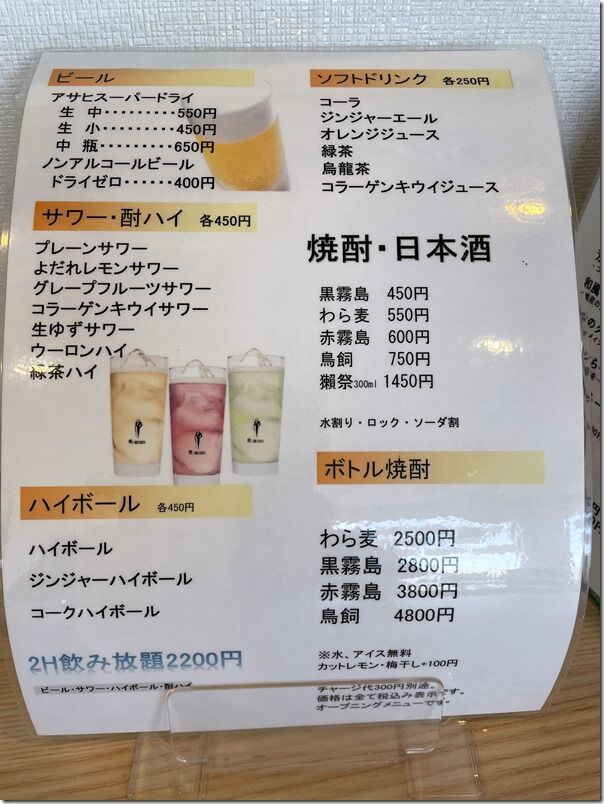 ビール
アサヒスーパードライ
生 中・・・・・・・・・550円
生 小・・・・・・・・・450円
中 瓶・・・・・・・・・650円
ノンアルコールビール
ドライゼロ・・・・・・400円
サワー・酎ハイ 各450円
プレーンサワー
よだれレモンサワー
グレープフルーツサワー
コラーゲンキウイサワー
生ゆずサワー
ウーロンハイ
緑茶ハイ
ハイボール 各450円
ハイボール
ジンジャーハイボール
コークハイボール
2H飲み放題2200円
ビール・サワー・ハイボール・酎ハイ
ソフトドリンク 各250円
コーラ
ジンジャーエール
オレンジジュース
緑茶
烏龍茶
コラーゲンキウイジュース
焼酎・日本酒
黒霧島 450円
わら麦 550円
赤霧島 600円
鳥飼 750円
獺祭300ml 1450円
水割り・ロック・ソーダ割
ボトル焼酎
わら麦 2500円
黒霧島 2800円
赤霧島 3800円
鳥飼 4800円
※水、アイス無料
カットレモン・梅干し+100円
チャージ代300円別途。
価格は全て税込み表示です。
オープニングメニューです